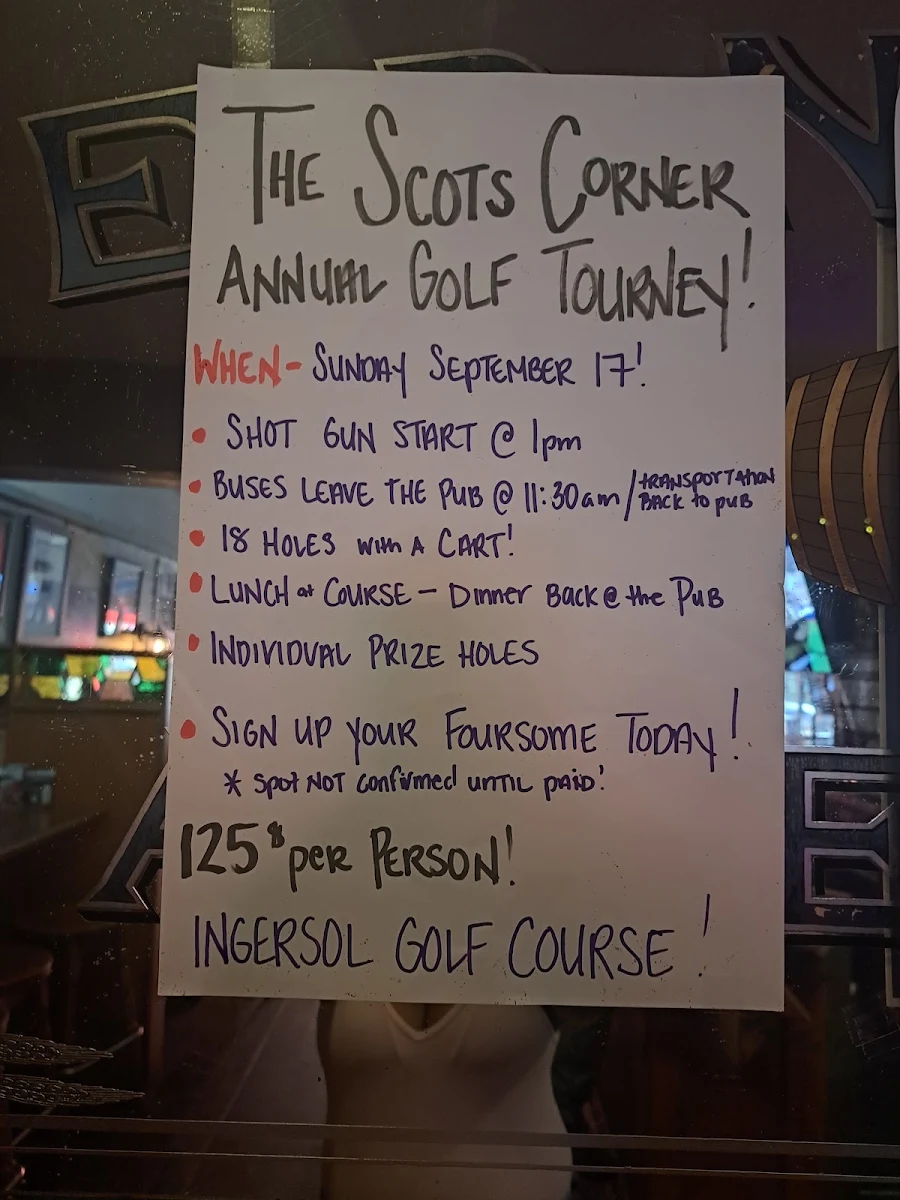 THE SCOTS CORNER
ANNUAL GOLF TOURNEY!
WHEN- SUNDAY SEPTEMBER 17!
• SHOT GUN START @ 1pm
• BUSES LEAVE THE PUB @ 11:30am / TRANSPORTATION BACK to pub
• 18 HOLES WITH A CART!
• LUNCH at COURSE - Dinner Back @ the PUB
• INDIVIDUAL PRIZE HOLES
• SIGN UP YOUR FOURSOME TODAY!
* Spot NOT confirmed UNTIL PAID!
125$ per PERSON!
INGERSOL GOLF COURSE!